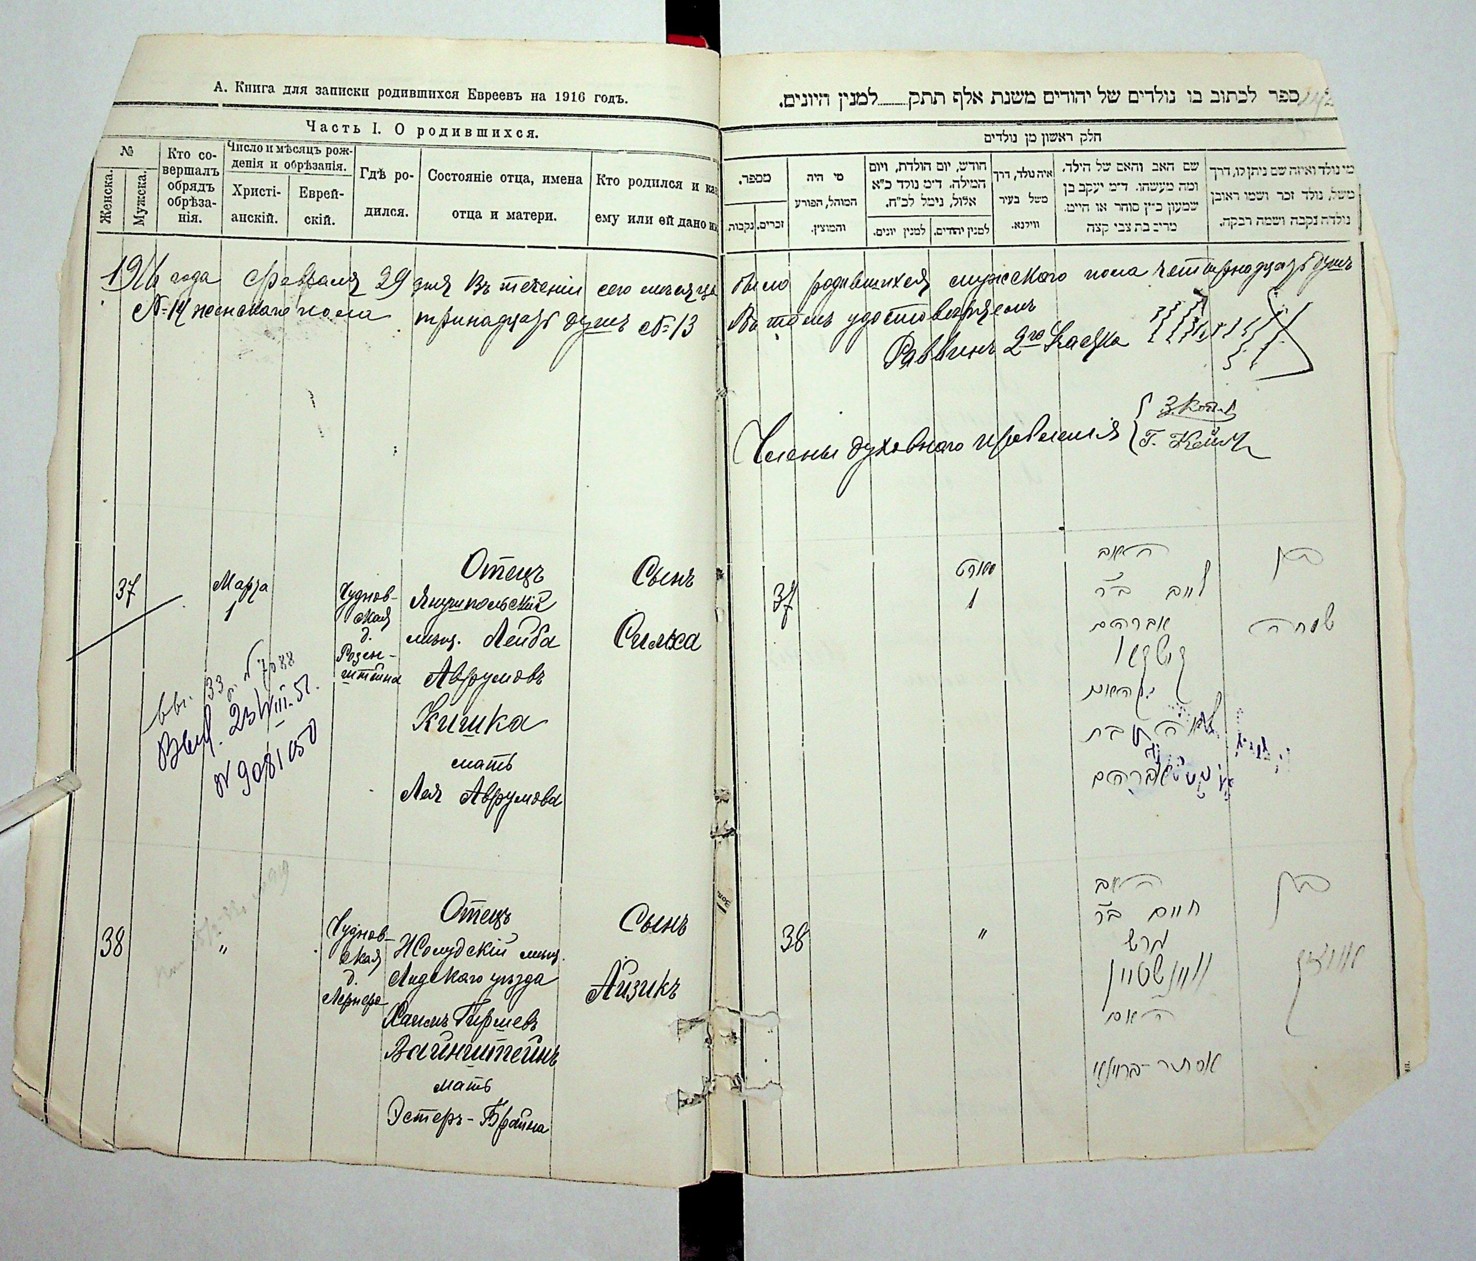 А. Книга для записки родившихся Евреевъ на 1916 годъ.
Часть I. О родившихся.
№
Женска.
Мужска.
Кто со-
вершалъ
обрядъ
обрѣза-
нія.
Число и мѣсяцъ рож-
денія и обрѣзанія.
Христі-
анскій.
Еврей-
скій.
Гдѣ ро-
дился.
Состояніе отца, имена
отца и матери.
Кто родился и ка
ему или ей дано и
1916 года Февраля 29 дня Въ теченіи сего мѣсяца
№ 14 женскаго пола тринадцать душъ № 13
37
Марта
1
Чуднов-
ская
д.
Розен-
штейна
Отецъ
Янушпольскій
мѣщ. Лейба
Аврумовъ
Кишка
мать
Лея Аврумова
Сынъ
Симха
33 № 7088
Выд. 23/VIII-51.
№ 9081050
38
"
Чуднов-
ская
д.
Лернера
Отецъ
Жолудскій мѣщ.
Лидскаго уѣзда
Хаимъ Гиршевъ
Вайнштейнъ
мать
Эстеръ-Брайна
Сынъ
Айзикъ
ספר לכתוב בו נולדים של יהודים משנת אלף תתק למנין היונים.
חלק ראשון מן נולדים
מספר.
זכרים.
נקבות.
מי היה
המוהל, הפורע
והמוצץ.
חודש, יום הולדת, ויום
המילה. ד״מ נולד כ״א
אלול, נימל לכ״ח.
למנין יהודים.
למנין יונים.
איה נולד, דרך
משל בעיר
ווילנא.
שם האב והאם של הילד.
ומה מעשהו. ד״מ יעקב בן
שמעון כ״ץ סוחר או חייט.
מרים בת צבי קצה
מי נולד ואיזה שם ניתן לו, דרך
משל, נולד זכר ושמו ראובן
נולדה נקבה ושמה רבקה.
было родившихся мужского пола четырнадцать душъ
Въ томъ удостовѣряемъ
Раввинъ 2го Участка
Члены духовнаго правленія
37
מארט
1
האב
לייב ב״ר
אברהם
קישקא
האם
לאה בת
אברהם
בן
שמחה
38
"
האב
חיים ב״ר
הרש
וויינשטיין
האם
אסתר-בריינא
בן
אייזיק